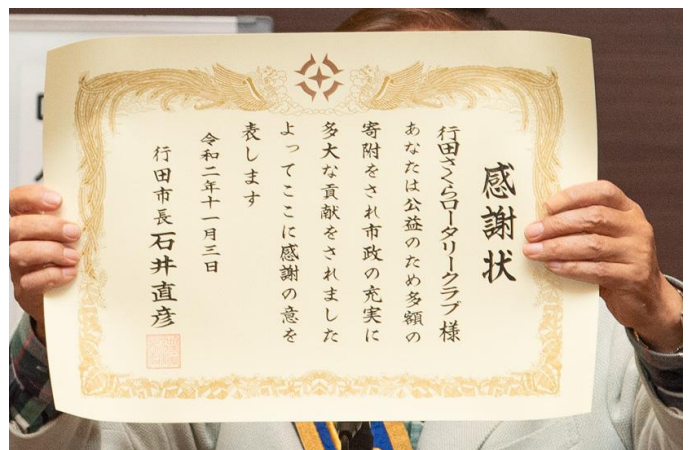 感謝状
行田さくらロータリークラブ様
あなたは公益のため多額の
寄附をされ市政の充実に
多大な貢献をされました
よってここに感謝の意を
表します
令和二年十一月三日
行田市長 石井直彦